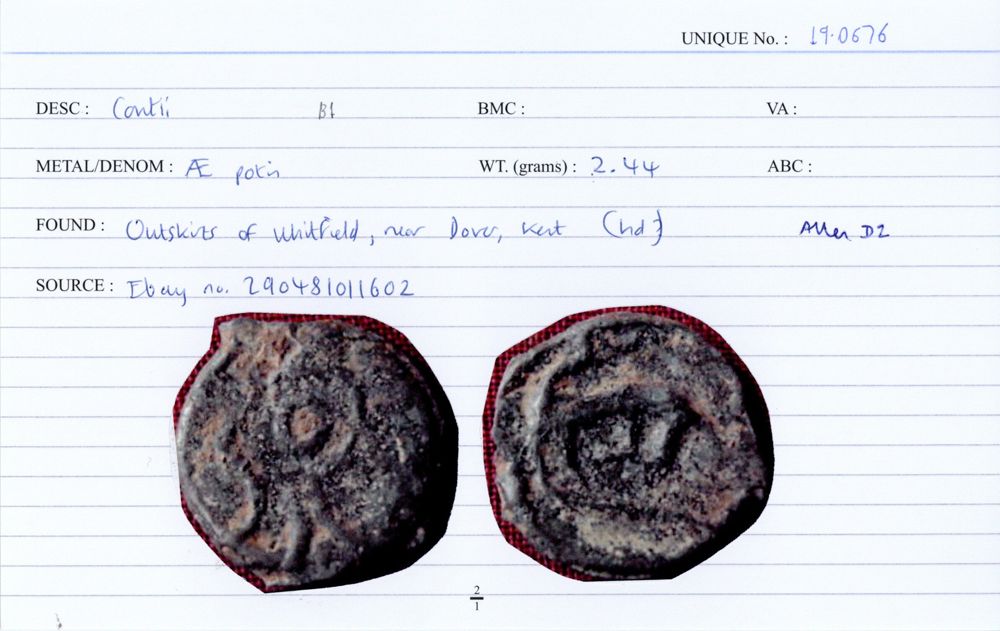 UNIQUE No. : 19.0676
DESC : Cantii B1 BMC : VA :
METAL/DENOM : Æ potin WT. (grams) : 2.44 ABC :
FOUND : Outskirts of Whitfield, near Dover, Kent (hd?) Allen D2
SOURCE : Ebay no. 290481011602
2
1